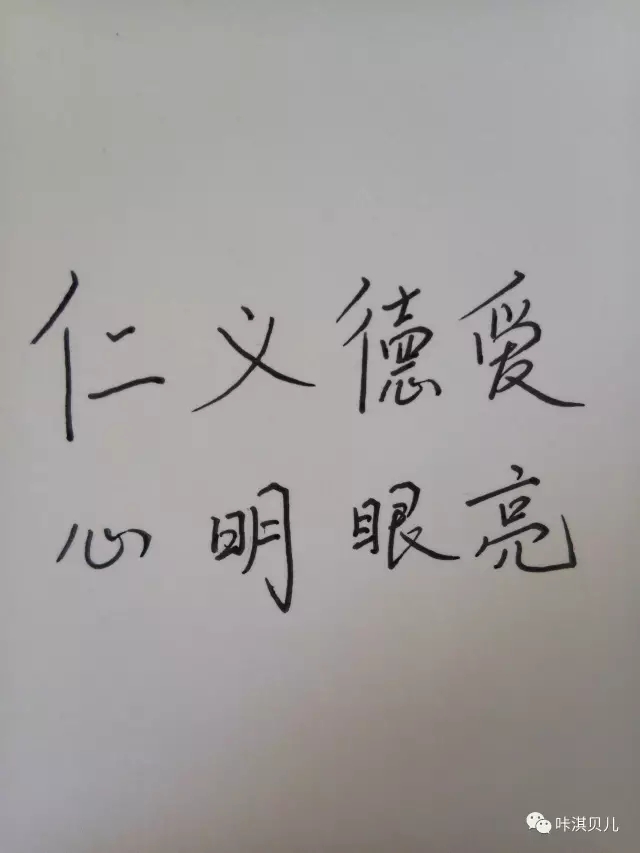 仁义德爱
心明眼亮
咔淇贝儿